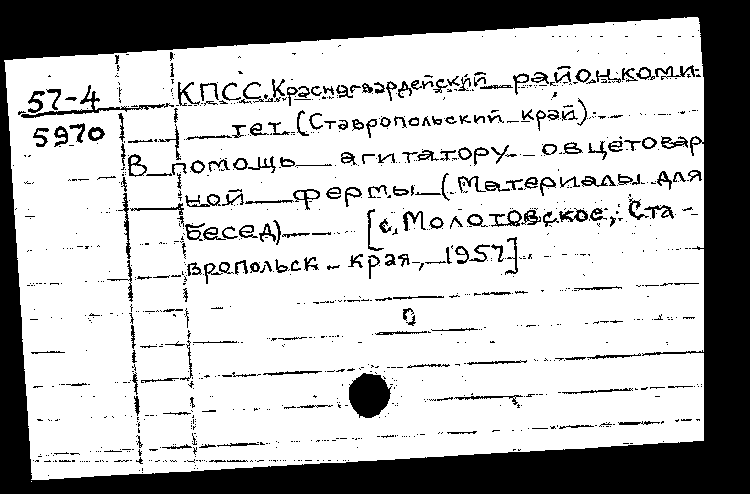 57-4
5970
КПСС. Красногвардейский район. коми-
тет. (Ставропольский край).
В помощь агитатору овцетовар
ной фермы (Материалы для
бесед) [с. Молотовское, Ста-
вропольск. края, 1957].